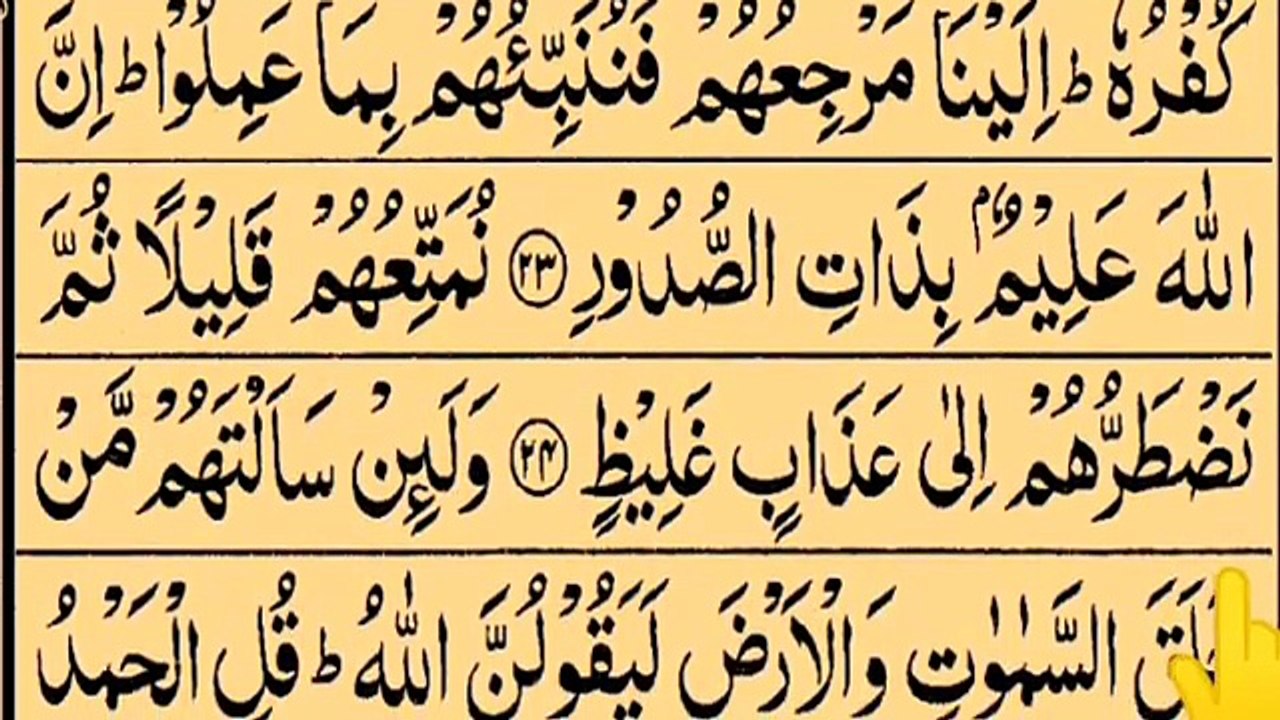 كُفْرُهٗ ؕ اِلَيْنَا مَرْجِعُهُمْ فَنُنَبِّئُهُمْ بِمَا عَمِلُوْا ؕ اِنَّ
اللّٰهَ عَلِيْمٌۢ بِذَاتِ الصُّدُوْرِ ﴿۲۳﴾ نُمَتِّعُهُمْ قَلِيْلًا ثُمَّ
نَضْطَرُّهُمْ اِلٰى عَذَابٍ غَلِيْظٍ ﴿۲۴﴾ وَلَىِٕنْ سَاَلْتَهُمْ مَّنْ
خَلَقَ السَّمٰوٰتِ وَالْاَرْضَ لَيَقُوْلُنَّ اللّٰهُ ؕ قُلِ الْحَمْدُ